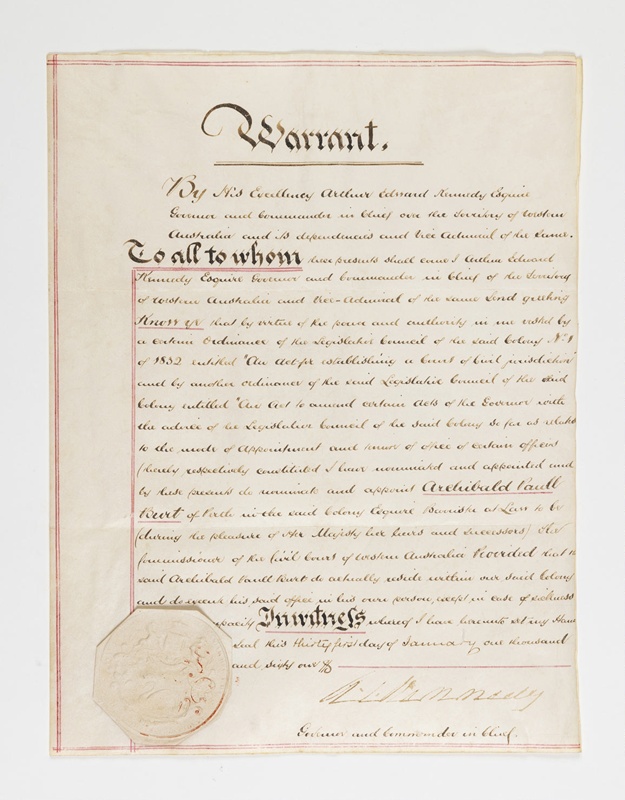 Warrant.
By His Excellency Arthur Edward Kennedy Esquire
Governor and Commander in Chief over the Territory of Western
Australia and its dependencies and Vice Admiral of the same.
To all to whom these presents shall come I Arthur Edward
Kennedy Esquire Governor and Commander in Chief of the Territory
of Western Australia and Vice-Admiral of the same Send greeting
Know ye that by virtue of the power and authority in me vested by
a certain Ordinance of the Legislative Council of the said Colony No. 1
of 1832 entitled "An Act for establishing a Court of Civil jurisdiction"
and by another ordinance of the said Legislative Council of the said
Colony entitled "An Act to amend certain Acts of the Governor with
the advice of the Legislative Council of the said Colony so far as relates
to the mode of appointment and tenure of office of certain officers
thereby respectively constituted I have nominated and appointed and
by these presents do nominate and appoint Archibald Paull
Burt of Perth in the said Colony Esquire Barrister at Law to be
(during the pleasure of Her Majesty her heirs and successors) The
Commissioner of the Civil Court of Western Australia Provided that the
said Archibald Paull Burt do actually reside within our said Colony
and do execute his said office in his own person, except in case of sickness
In witness whereof I have hereunto set my Hand
Seal this thirty first day of January one thousand
and sixty one
A. E. Kennedy
Governor and Commander in Chief.